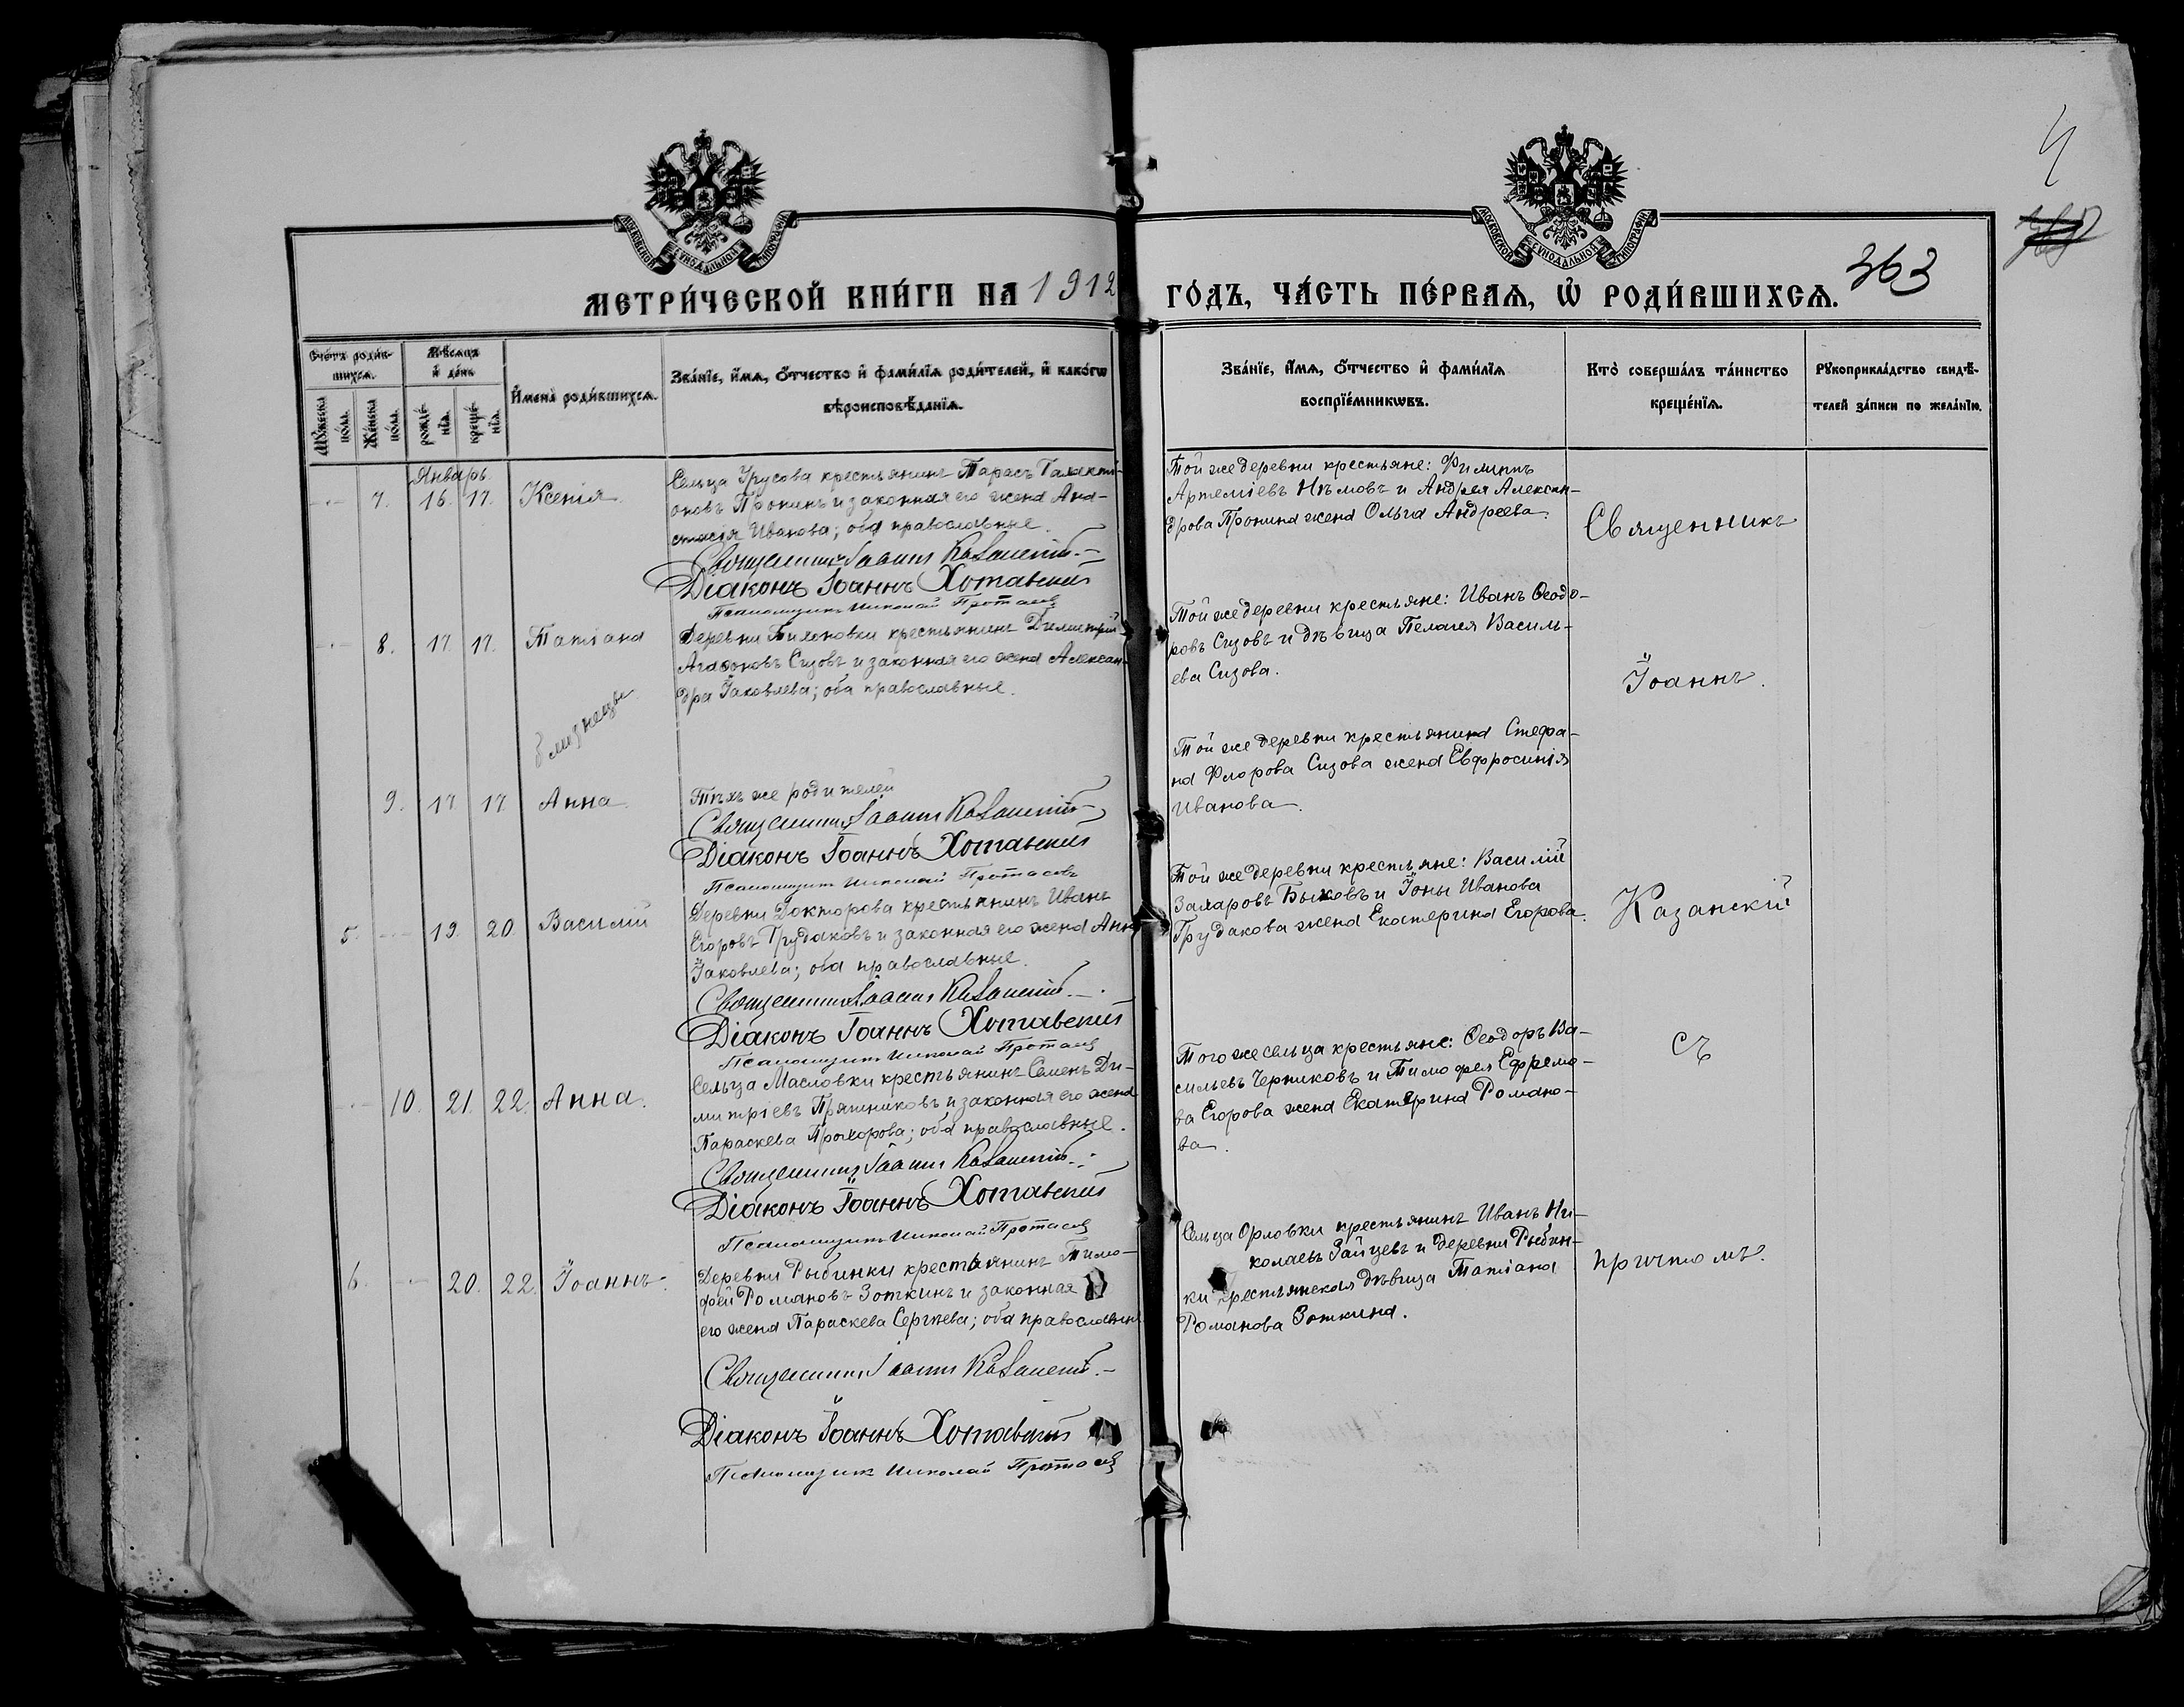 4
МОСКОВСКОЙ СѴНОДАЛЬНОЙ ТИПОГРАФІИ
МОСКОВСКОЙ СѴНОДАЛЬНОЙ ТИПОГРАФІИ
МЕТРИ́ЧЕСКОЙ КНИ́ГИ НА 1912 ГО́ДЪ, ЧА́СТЬ ПЕ́РВАѦ, Ѡ РОДИ́ВШИХСѦ. 363
Сче́тъ роди́в-
шихсѧ.
Мѣ́сѧцъ
и де́нь
Мꙋ́жеска по́ла.
Же́нска по́ла.
рожде́-
нїѧ.
креще́-
нїѧ.
И҆мена̀ роди́вшихсѧ.
Зва́нїе, и҆́мѧ, ѻ҆́тчество и҆ фами́лїѧ роди́телей, и҆ како́гѡ
вѣроисповѣ́данїѧ.
Зва́нїе, и҆́мѧ, ѻ҆́тчество и҆ фами́лїѧ
воспрїе́мникѡвъ.
Кто̀ соверша́лъ та́инство
креще́нїѧ.
Рꙋкоприкла́дство свидѣ́-
телей за́писи по жела́нїю.
Январь
7. 16. 17. Ксенія
Сельца Урусова крестьянинъ Тарасъ Галакті-
оновъ Пронинъ и законная его жена Ана-
стасія Иванова; оба православные.
Священникъ Іоаннъ Казанскій
Діаконъ Іоаннъ Хотавскій
Псаломщикъ Николай Протасов
Той же деревни крестьяне: Филиппъ
Артеміевъ Нѣмовъ и Андрея Алексан-
дрова Пронина жена Ольга Андреева.
8. 17. 17. Татіана
Деревни Тихоновки крестьянинъ Димитрій
Агафоновъ Сизовъ и законная его жена Алексан-
дра Іаковлева; оба православные.
Той же деревни крестьяне: Иванъ Ѳеодо-
ровъ Сизовъ и дѣвица Пелагея Василь-
ева Сизова.
близнецы
9. 17 17 Анна
Тѣхъ же родителей
Священникъ Іоаннъ Казанскій
Діаконъ Іоаннъ Хотавскій
Псаломщикъ Николай Протасовъ
Той же деревни крестьянина Стефа-
на Флорова Сизова жена Евфросинія
Иванова.
5. 19. 20. Василій
Деревни Докторова крестьянинъ Иванъ
Егоровъ Грудаковъ и законная его жена Анна
Іаковлева; оба православные.
Священникъ Іоаннъ Казанскій
Діаконъ Іоаннъ Хотавскій
Псаломщикъ Николай Протасов
Той же деревни крестьяне: Василій
Захаровъ Быковъ и Іоны Иванова
Грудакова жена Екатерина Егорова.
10. 21. 22. Анна.
Сельца Масловки крестьянинъ Семенъ Ди-
митріевъ Пряшниковъ и законная его жена
Параскева Прохорова; оба православные.
Священникъ Іоаннъ Казанскій
Діаконъ Іоаннъ Хотавскій
Псаломщикъ Николай Протасов
Того же сельца крестьяне: Ѳеодоръ Ва-
сильевъ Черниковъ и Тимофея Ефремо-
ва Егорова жена Екатерина Романо-
ва.
6. 20. 22. Іоаннъ.
Деревни Рыбинки крестьянинъ Тимо-
фей Романовъ Зоткинъ и законная
его жена Параскева Сергѣева; оба православные
Священникъ Іоаннъ Казанскій
Діаконъ Іоаннъ Хотавскій
Псаломщикъ Николай Протасов
Сельца Орловки крестьянинъ Иванъ Ни-
колаевъ Зайцевъ и деревни Рыбин-
ки крестьянская дѣвица Татіана
Романова Зоткина.
Священникъ
Іоаннъ.
Казанскій
съ
причтомъ.